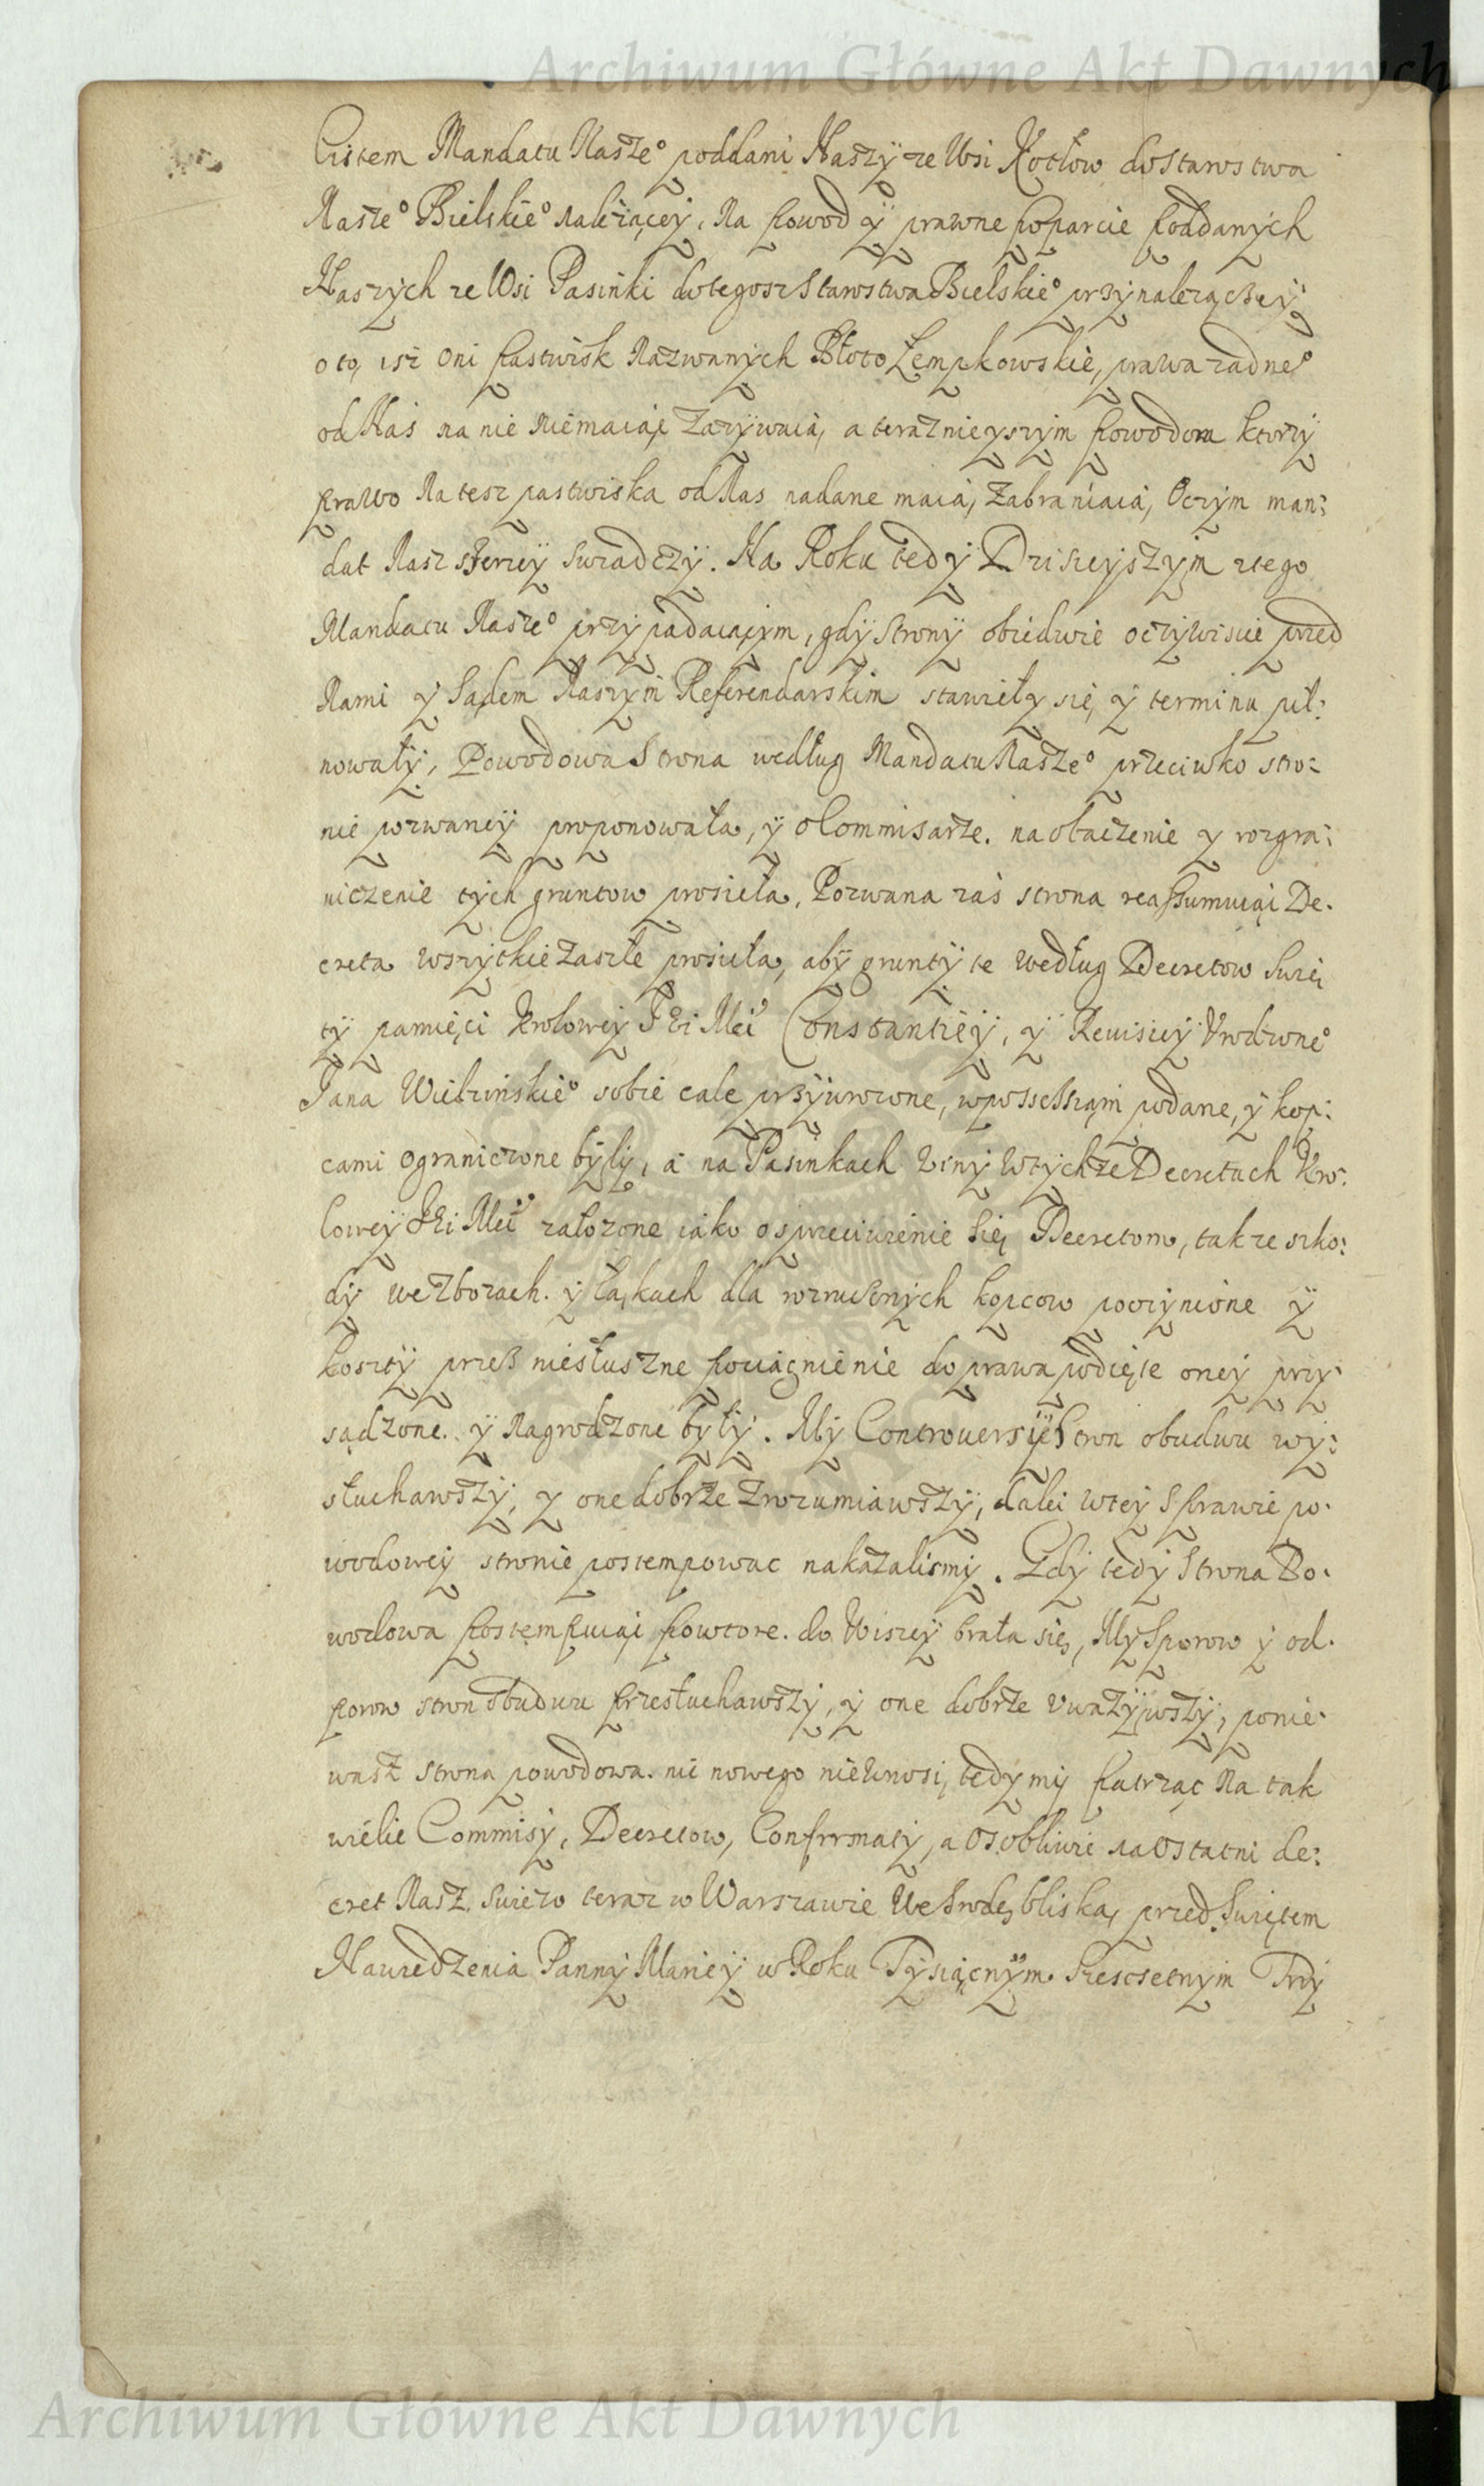 Archiwum Główne Akt Dawnych
Listem Mandatu Nasze° poddani Naszÿ ze Wsi Kotłow do Starostwa
Nasze° Bielskie° należącey, Na powod ÿ prawne poparcie poddanÿch
Naszÿch ze Wsi Pasinki do tegosz Starostwa Bielskie° przÿnalezączeÿ
o to, isz oni pastwisk Nazwanÿch Błoto Łempkowskie, prawa zadne°
od Nas na nie niemaiąc zazÿwaią, a teraznieÿszÿm powodom ktorzÿ
prawo Na tesz pastwiska od Nas nadane maią, zabraniaią, Oczÿm man:
dat Nasz szerzeÿ swiadczÿ. Na Roku tedÿ Dzisieÿszÿm ztego
Mandatu Nasze° przÿpadaiącÿm, gdÿ Stronÿ obiedwie oczÿwiscie przed
Nami ÿ Sądem Naszÿm Referendarskim stawiełÿ się, ÿ terminu pil:
nowałÿ, Powodowa Strona według Mandatu Nasze° przeciwko stro:
nie pozwaneÿ proponowała, ÿ o Commisarze. na obaczenie ÿ rozgra:
niczenie tÿch gruntow prosieła. Pozwana zaś strona reassumuiąc De.
creta wszÿtkie zaszłe prosieła, abÿ gruntÿ te według Decretow Swię
tÿ pamięci Kroloweÿ JEi Mci Constantieÿ, ÿ Rewisieÿ Vrodzone°
Jana Wiełzinskie° sobie cale przÿwrocone, wpossessią podane, ÿ kop:
cami ograniczone bÿlÿ, a na Pasinkach winÿ wtÿchze Decretach Kro:
loweÿ JEi Mci załozone iako o sprzeciwienie się Decretom, takze szko:
dÿ we zbozach. ÿ łąkach dla wzruszonÿch kopcow poczÿnione ÿ
kosztÿ przez niesłuszne pociągnienie do prawa podięte oneÿ przÿ:
sądzone. ÿ Nagrodzone bÿłÿ. Mÿ Controuersÿe Stron obudwu wÿ:
słuchawszÿ, ÿ one dobrze zrozumiawszÿ, dalei wteÿ Sprawie po.
wodoweÿ stronie postempowac nakazalismÿ. Gdÿ tedÿ Strona Po.
wodowa postempuiąc powtore. do Wiszeÿ brała się, Mÿ Sporow ÿ od.
porow stron obudwu przesłuchawszÿ, ÿ one dobrze vwazÿwszÿ, ponie.
wasz strona powodowa. nic nowego niewnosi, tedÿ mÿ patrząc Na tak
wielie Commisÿ, Decretow, Confirmatÿ, a osobliwie na ostatni de:
cret Nasz, swiezo teraz w Warszawie we Srodę bliską, przed Swiętem
Nawiedzenia Pannÿ Marieÿ w Roku Tÿsiącnÿm Szescsetnÿm Trzÿ
Archiwum Główne Akt Dawnych